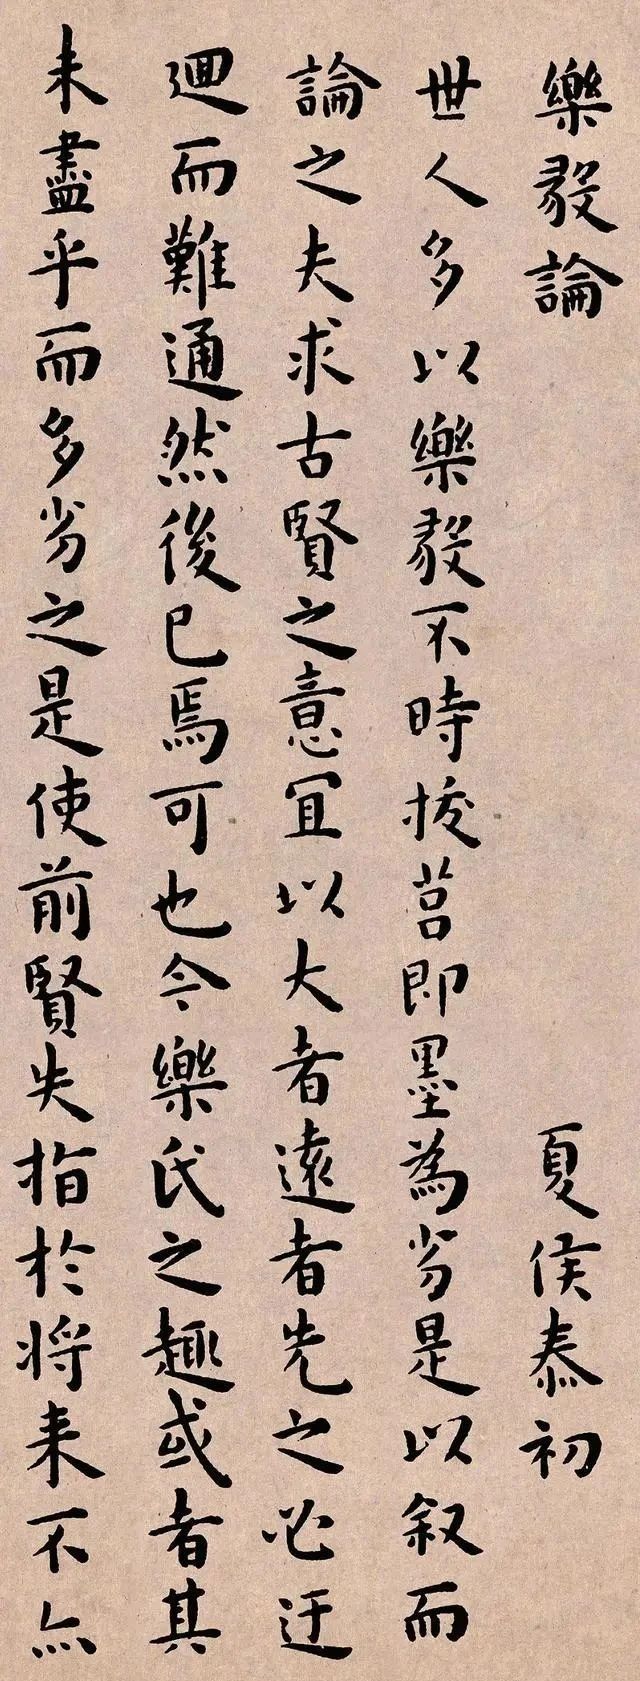 樂毅論 夏侯泰初
世人多以樂毅不時拔莒即墨為劣是以叙而
論之夫求古賢之意宜以大者遠者先之必迂
迴而難通然後已焉可也今樂氏之趣或者其
未盡乎而多劣之是使前賢失指於将来不亦